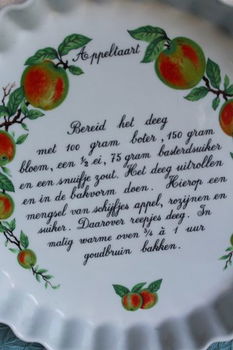 Appeltaart
Bereid het deeg
met 100 gram boter, 150 gram
bloem, een ½ ei, 75 gram basterdsuiker
en een snuifje zout. Het deeg uitrollen
en in de bakvorm doen. Hierop een
mengsel van schijfjes appel, rozijnen en
suiker. Daarover reepjes deeg. In
matig warme oven ¾ à 1 uur
goudbruin bakken.